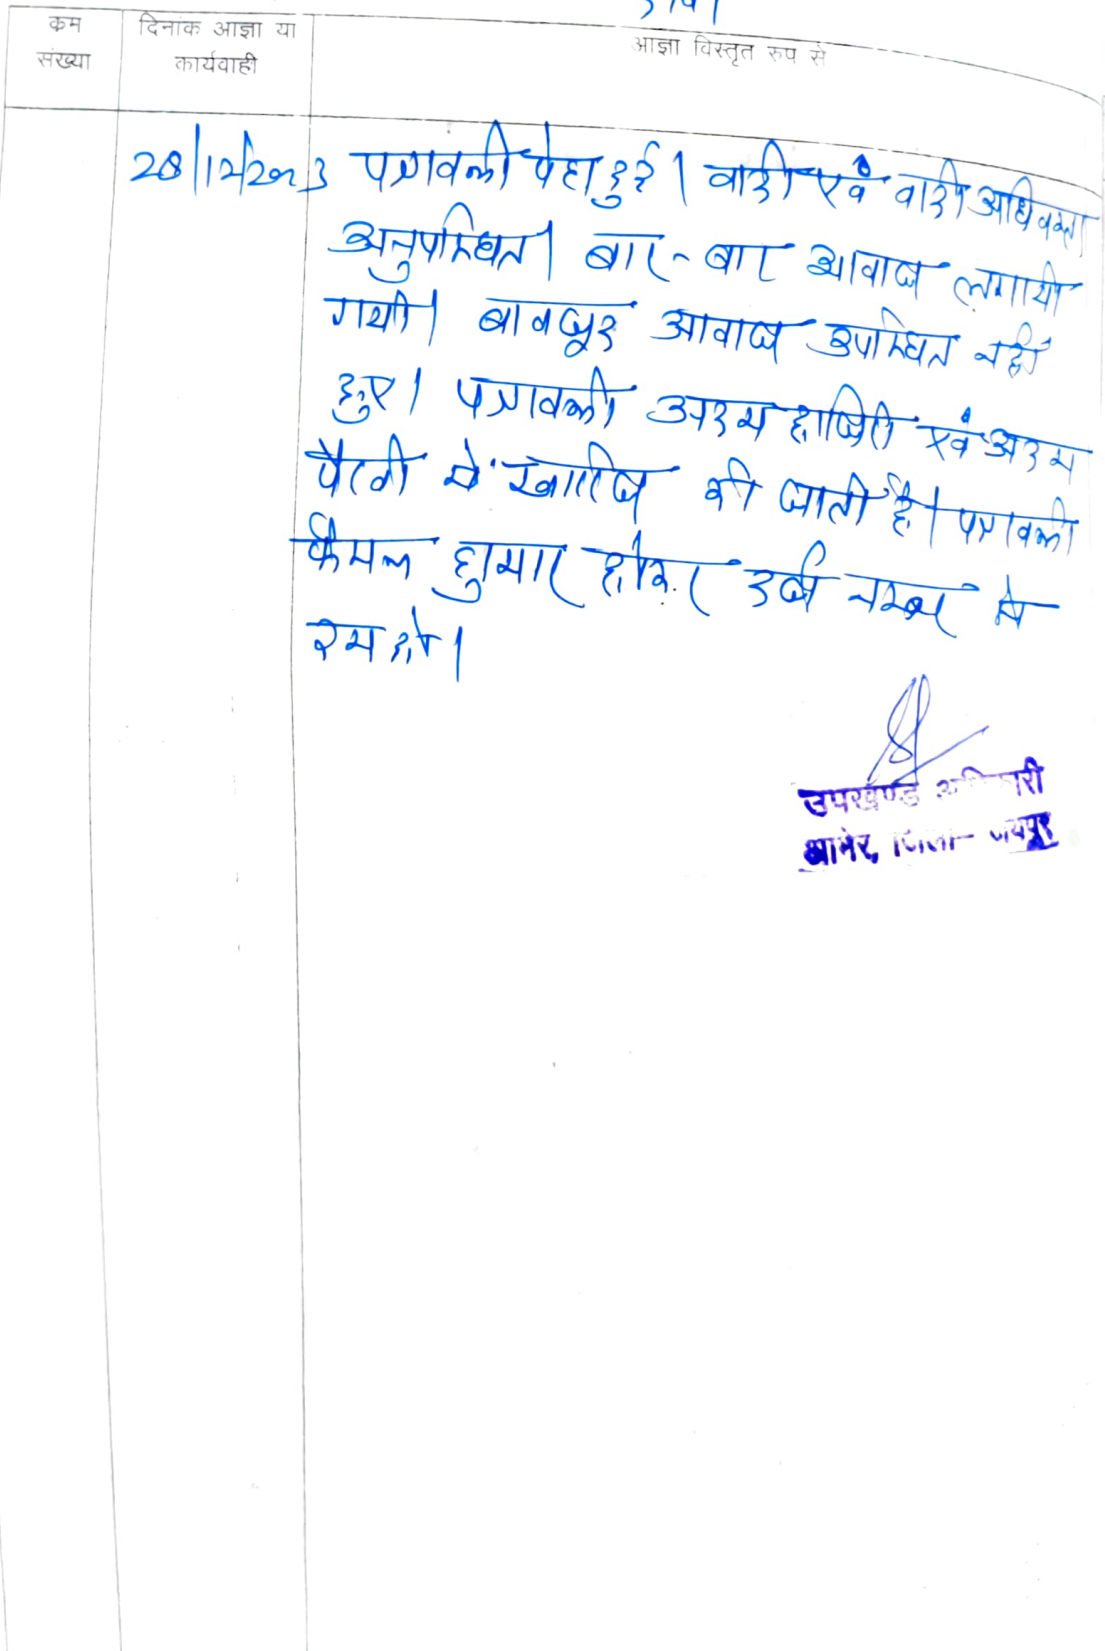 क्रम
संख्या
दिनांक आज्ञा या
कार्यवाही
आज्ञा विस्तृत रुप से
28/12/2023 पत्रावली पेश हुई। वादी एवं वादी अधिवक्ता
अनुपस्थित। बार-बार आवाज लगायी
गयी। बावजूद आवाज उपस्थित नहीं
हुए। पत्रावली अदम हाजिरी एवं अदम
पैरवी में खारिज की जाती है। पत्रावली
फैसल शुमार होकर दर्ज नम्बर से
कम हो।
उपखण्ड अधिकारी
आमेर, जिला- जयपुर